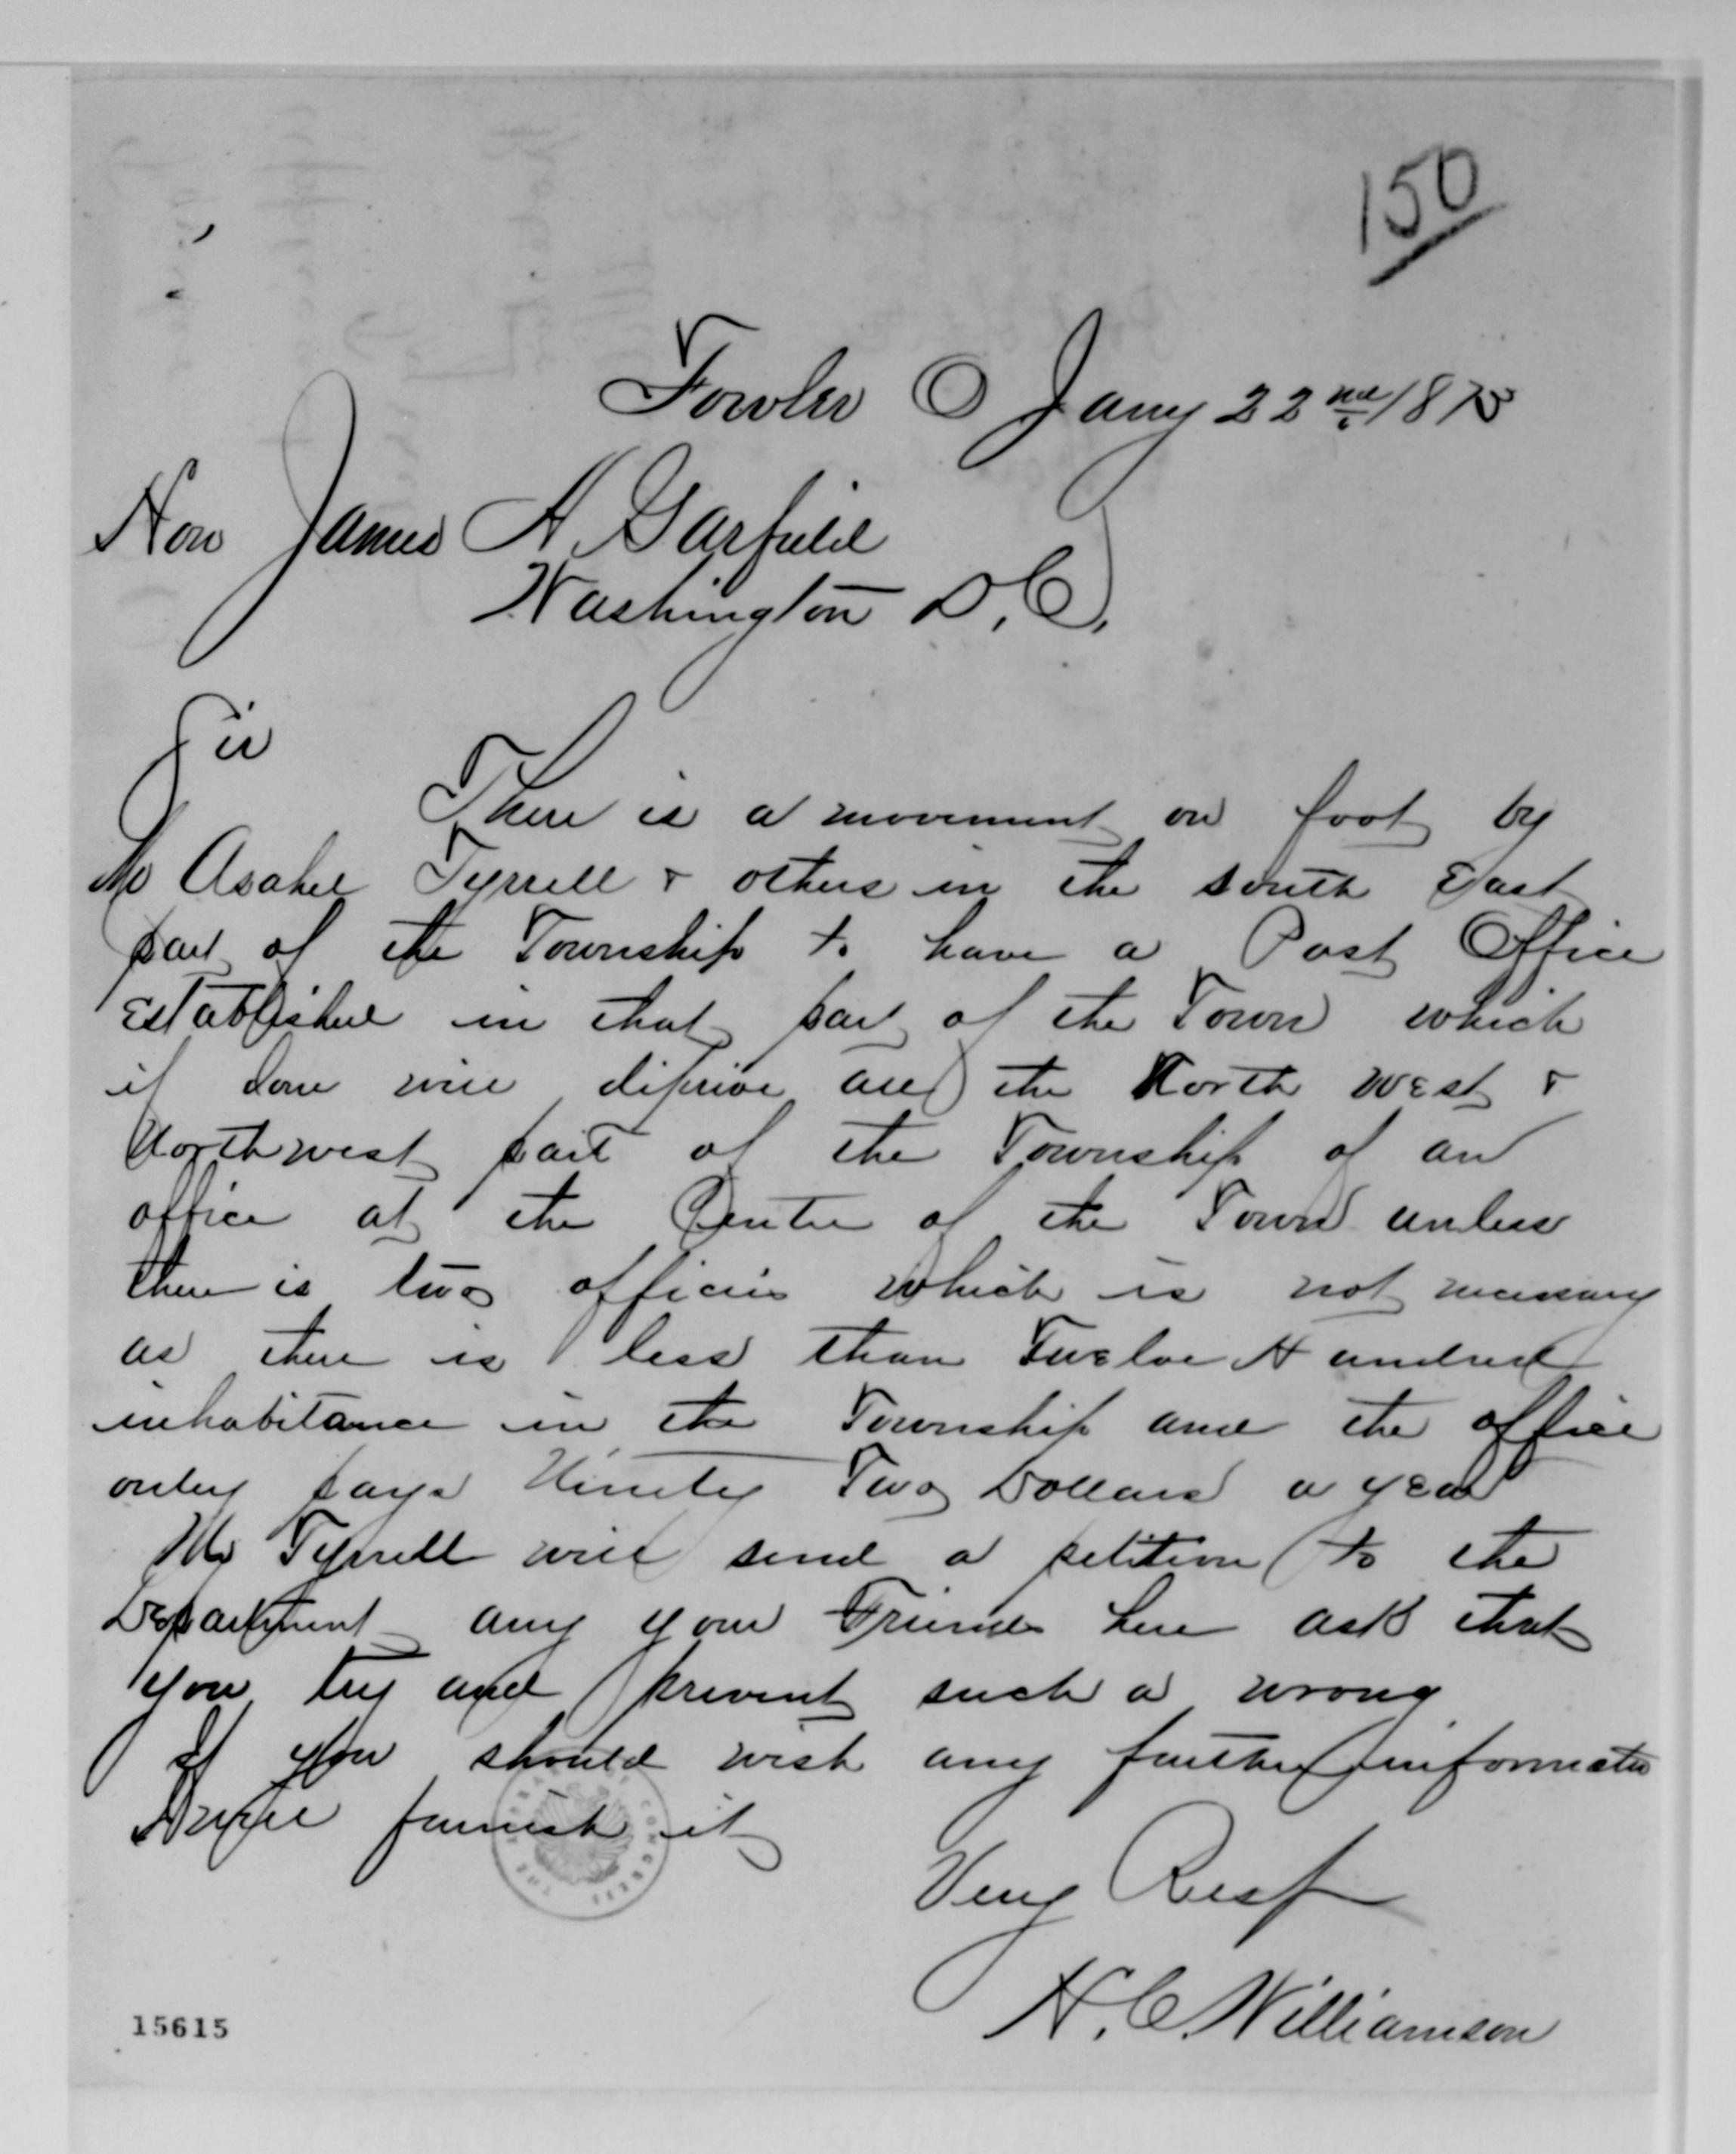 150
Fowler O Jany 22nd 1875
Hon James A. Garfield
Washington D.C.
Sir
There is a movement on foot by
Mr Asahel Tyrrell & others in the south East
part of the Township to have a Post Office
Established in that part of the Town which
if done will deprive all the North West &
Northwest part of the Township of an
office at the Centre of the Town unless
there is two offices which is not necessary
as there is less than Twelve Hundred
inhabitance in the Township and the office
only pays Ninety Two Dollars a year
Mr Tyrrell will send a petition to the
Department any your Friends here ask that
you try and prevent such a wrong
If you should wish any further
I will furnish it
Very Resp
H. C. Williamson
15615